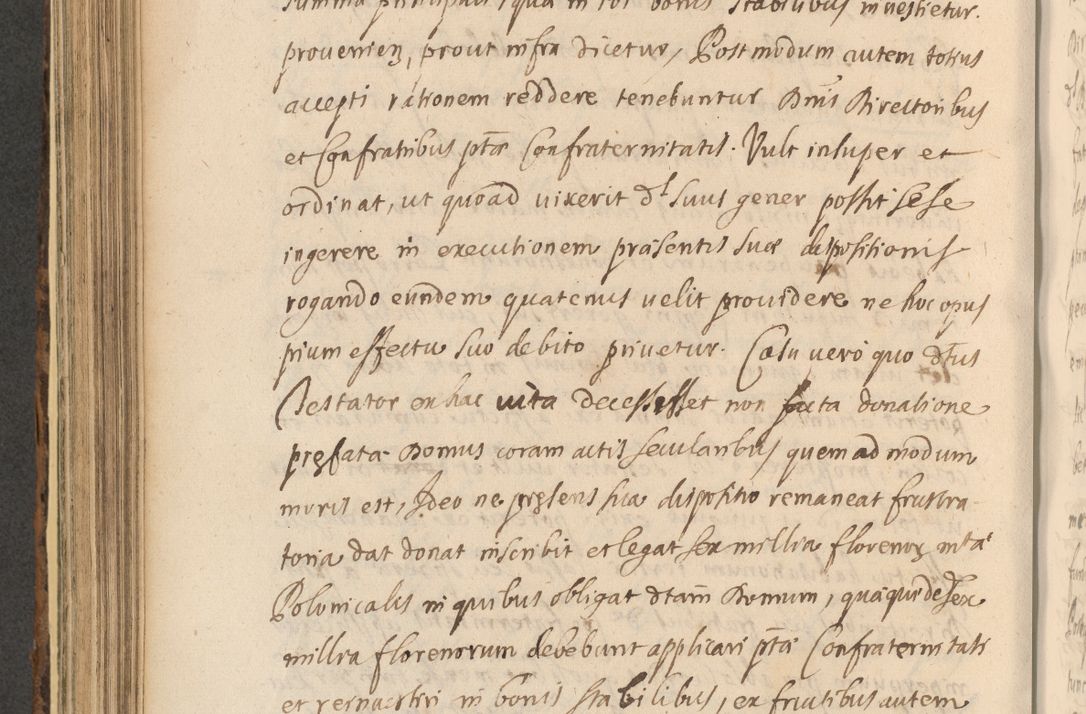 summa principali, qua in tot bonis stabilibus investietur.
provenien, prout infra dicetur, Postmodum autem totius
accepti rationem reddere tenebuntur Dnis Directoribus
et Confratribus ptæ Confraternitatis. Vult insuper et
ordinat, ut quoad vixerit dt suus gener possit sese
ingerere in executionem præsentis suæ dispositionis
rogando eundem quatenus velit providere ne hoc opus
pium effectu suo debito privetur. Casu vero quo dtus
Testator ex hac vita decessisset non facta donatione
præfatæ Domus coram actis secularibus quemadmodum
moris est, Ideo ne præsens sua dispositio remaneat frustra-
toria dat donat inscribit et legat sex millia florenor mtæ
Polonicalis in quibus obligat dtam Domum, quæquidem sex
millia florenorum debebunt applicari ptæ Confraternitati
et in bonis stabilibus, ex fructibus autem